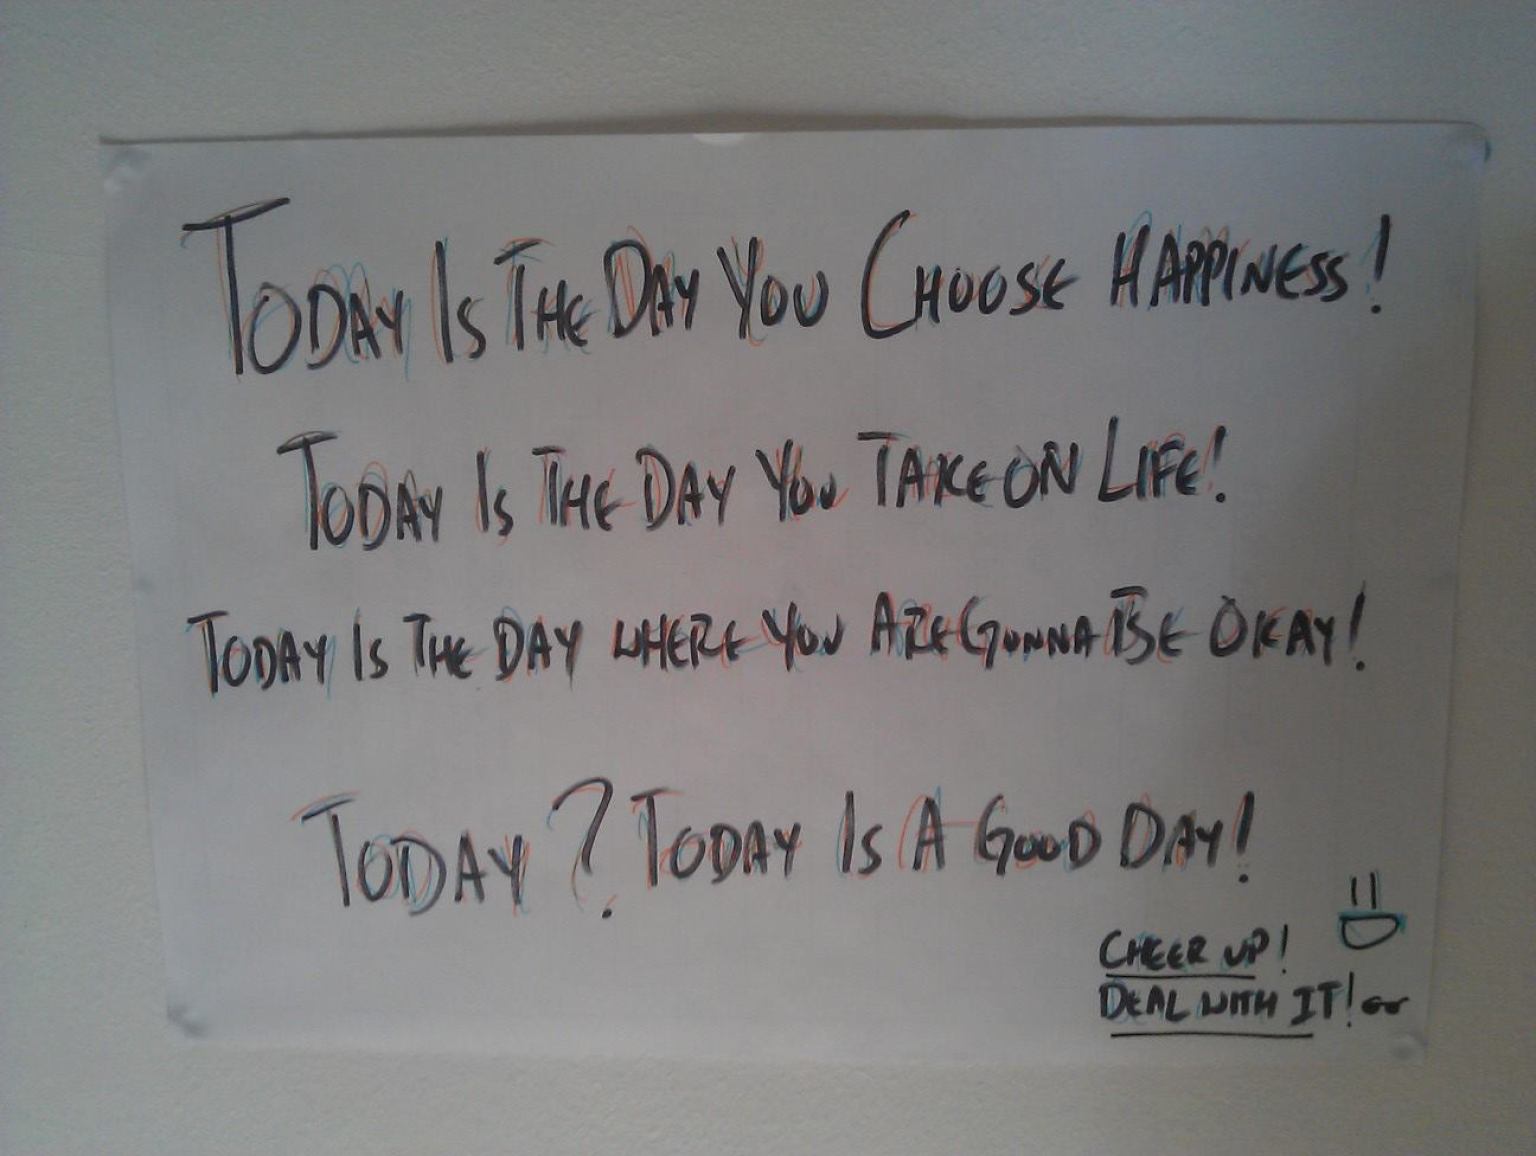 Today Is The Day You Choose Happiness!
Today Is The Day You Take On Life!
Today Is The Day Where You Are Gonna Be Okay!
Today? Today Is A Good Day!
Cheer Up!
Deal With It!